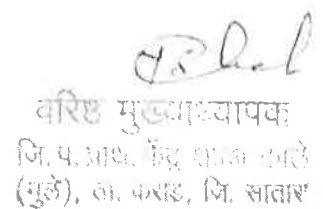 वरिष्ठ मुख्याध्यापक
जि. प. प्राथ. केंद्र शाळा काले
(मुले), ता. कराड, जि. सातारा